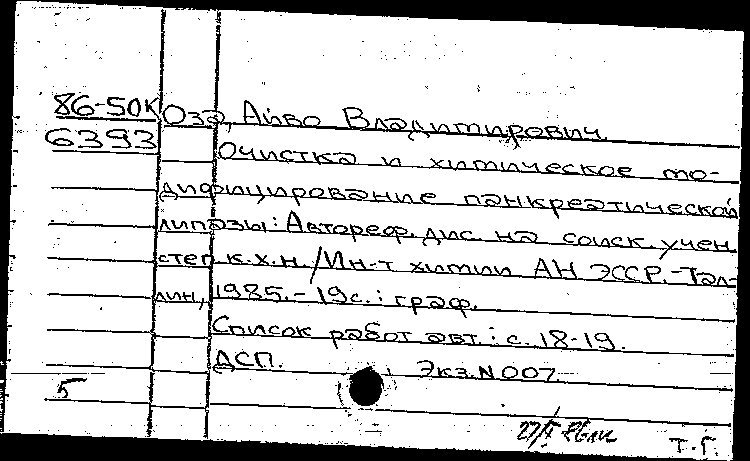 86-50К Оза, Айво Владимирович.
6393 Очистка и химическое мо-
дифицирование панкреатической
липазы: Автореф. дис. на соиск. учен.
степ к.х.н. / Ин-т химии АН ЭССР. - Тал-
лин, 1985. - 19с.: граф.
Список работ авт.: с. 18-19.
ДСП. Экз. N 007.
5
Т.Г.